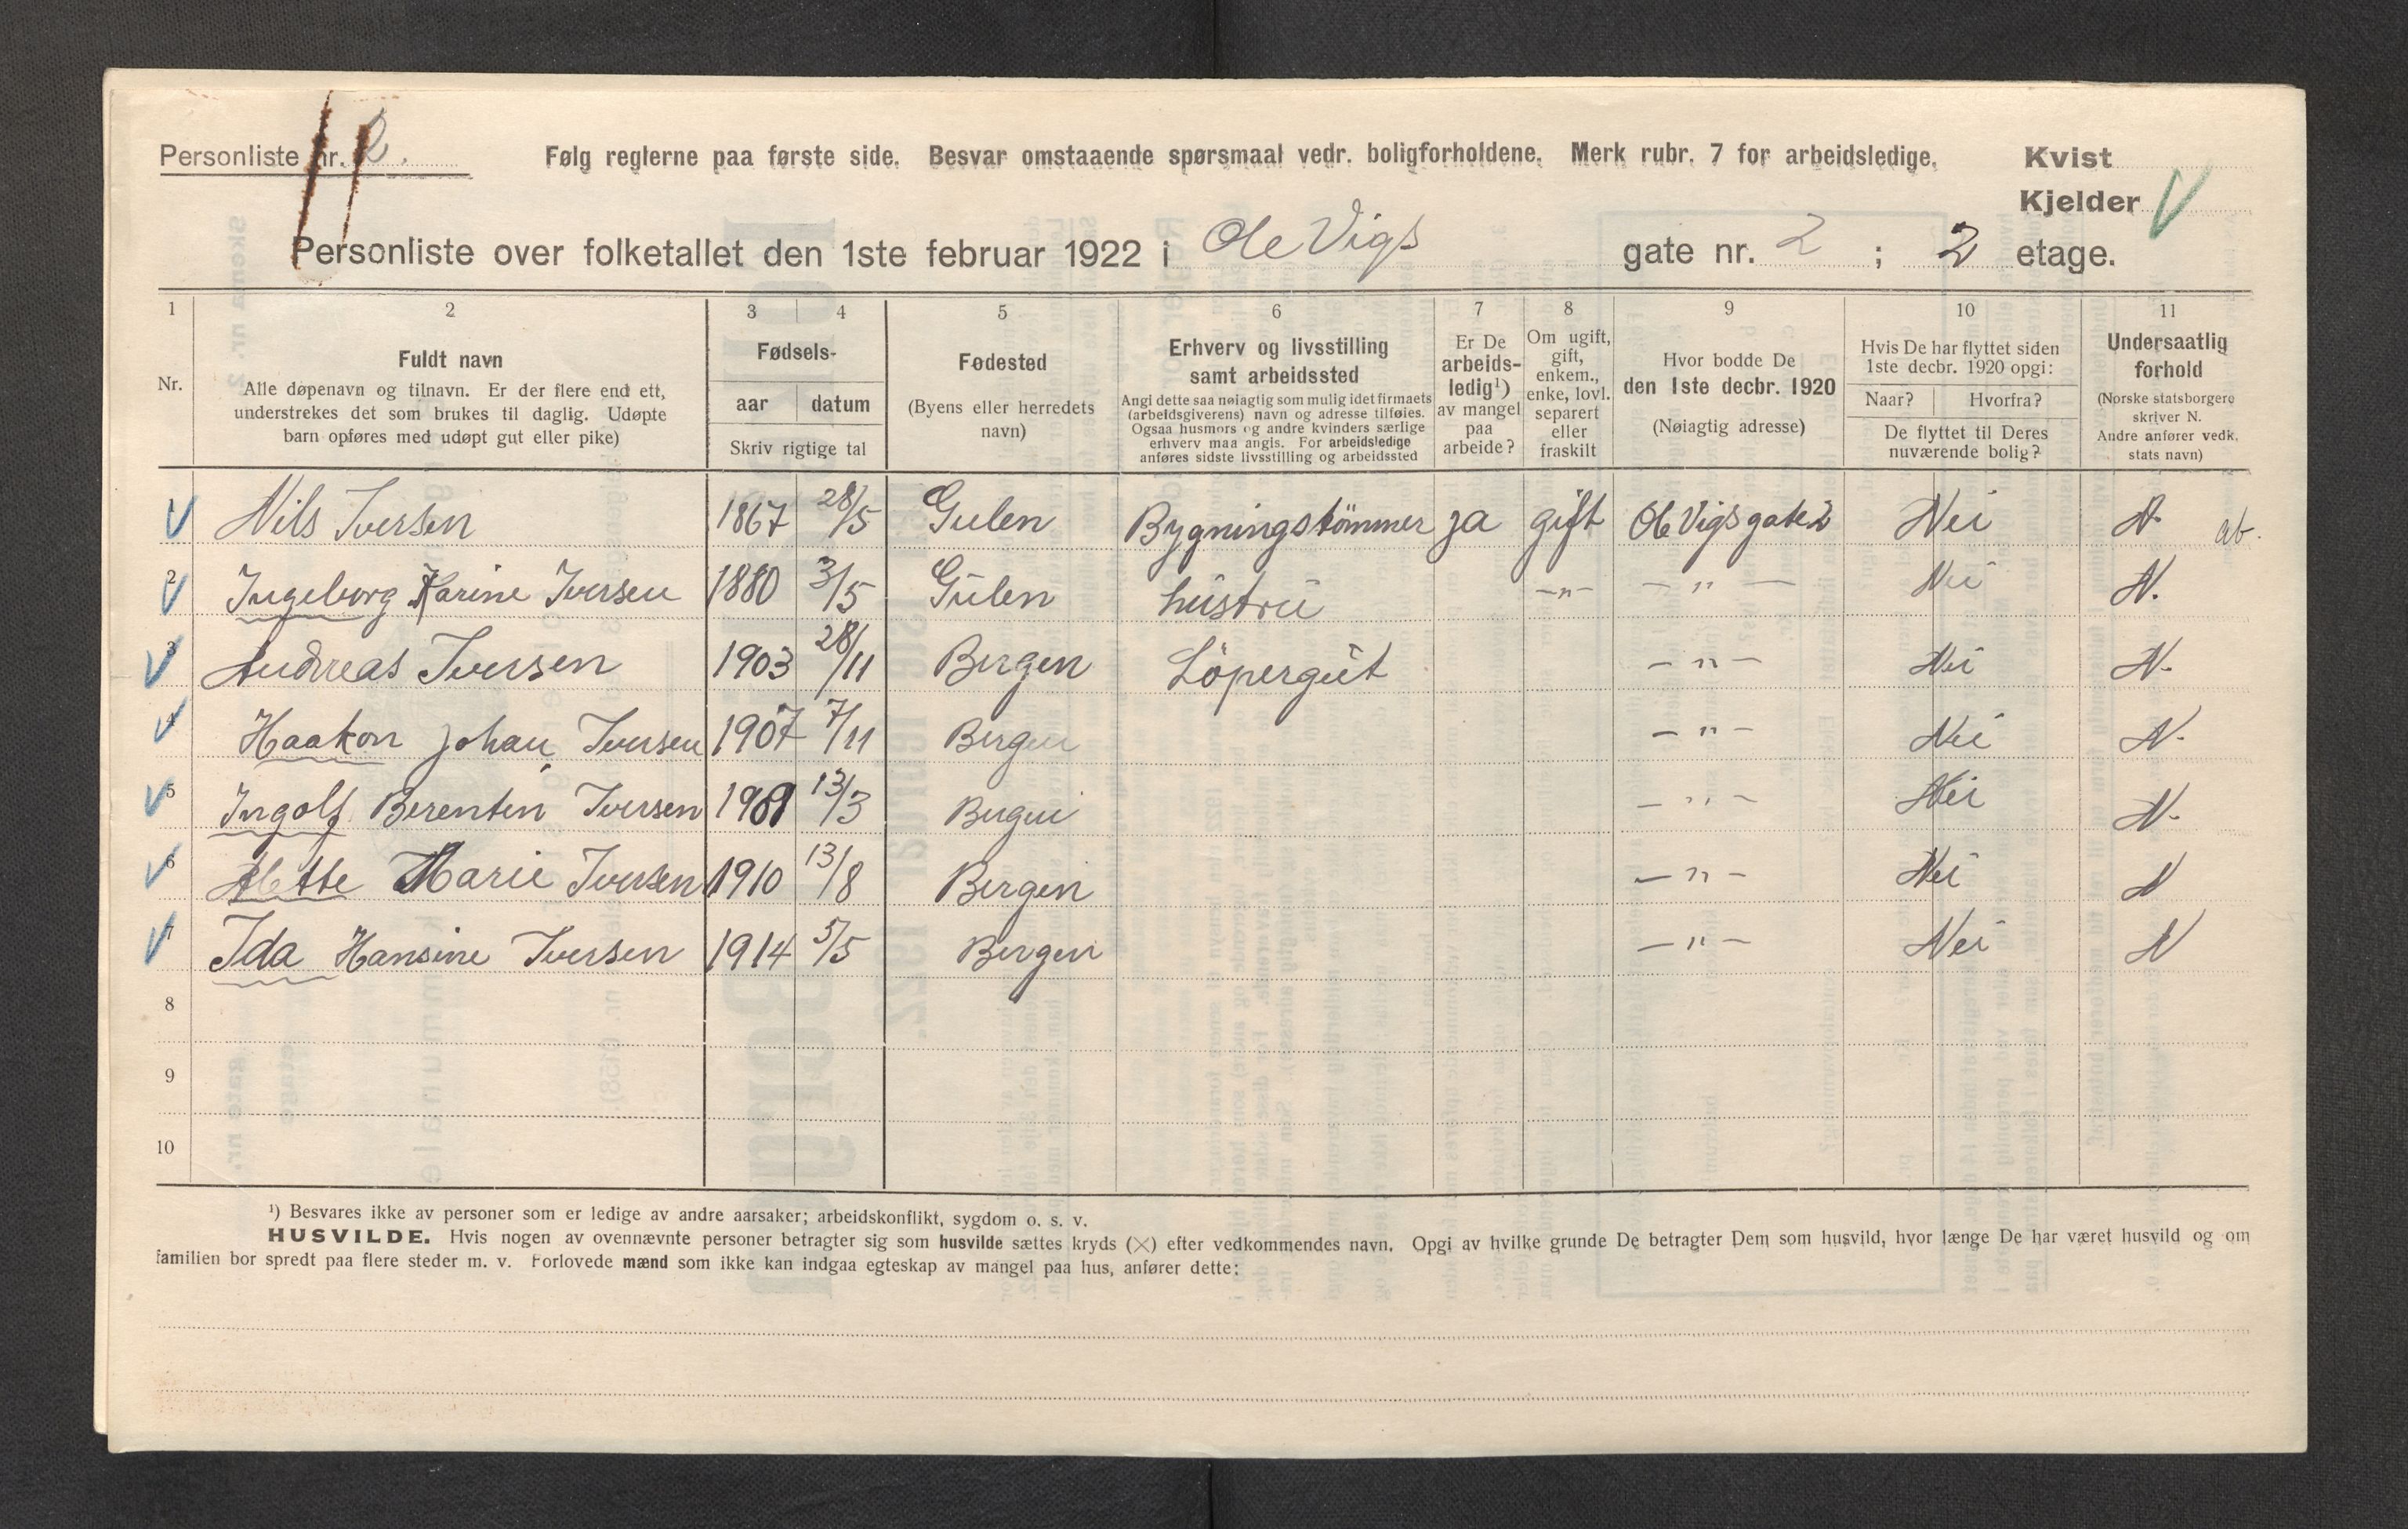 Personliste nr. 2.
Følg reglerne paa første side. Besvar omstaaende spørsmaal vedr. boligforholdene. Merk rubr. 7 for arbeidsledige.
Kvist
Kjelder
Personliste over folketallet den 1ste februar 1922 i Ole Vigs gate nr. 2 ; 2 etage.
1 2 3 4 5 6 7 8 9 10 11
Nr.
Fuldt navn
Alle døpenavn og tilnavn. Er der flere end ett,
understrekes det som brukes til daglig. Udøpte
barn opføres med udøpt gut eller pike)
Fødsels-
aar datum
Skriv rigtige tal
Fødested
(Byens eller herredets
navn)
Erhverv og livsstilling
samt arbeidssted
Angi dette saa nøiagtig som mulig idet firmaets
(arbeidsgiverens) navn og adresse tilføies.
Ogsaa husmors og andre kvinders særlige
erhverv maa angis. For arbeidsledige
anføres sidste livsstilling og arbeidssted
Er De
arbeids-
ledig¹)
av mangel
paa
arbeide?
Om ugift,
gift,
enkem.,
enke, lovl.
separert
eller
fraskilt
Hvor bodde De
den 1ste decbr. 1920
(Nøiagtig adresse)
Hvis De har flyttet siden
1ste decbr. 1920 opgi:
Naar? Hvorfra?
De flyttet til Deres
nuværende bolig?
Undersaatlig
forhold
(Norske statsborgere
skriver N.
Andre anfører vedk.
stats navn)
Nils Iversen 1867 28/5 Gulen Bygningstömmer ja gift Ole Vigs gate 2 Nei N. ab.
2 Ingeborg Karine Iversen 1880 3/5 Gulen hustru -"- - " - Nei N.
3 Andreas Iversen 1903 28/11 Bergen Löpergut - " - Nei N.
4 Haakon Johan Iversen 1907 7/11 Bergen - " - Nei N.
5 Ingolf Berentin Iversen 13/3 Bergen - " - Nei N.
6 Mette Marie Iversen 1910 13/8 Bergen - " - Nei N
7 Ida Hansine Iversen 1914 5/5 Bergen - " - Nei N
8
9
10
¹) Besvares ikke av personer som er ledige av andre aarsaker; arbeidskonflikt, sygdom o. s. v.
HUSVILDE. Hvis nogen av ovennævnte personer betragter sig som husvilde sættes kryds (×) efter vedkommendes navn. Opgi av hvilke grunde De betragter Dem som husvild, hvor længe De har været husvild og om
familien bor spredt paa flere steder m. v. Forlovede mænd som ikke kan indgaa egteskap av mangel paa hus, anfører dette: